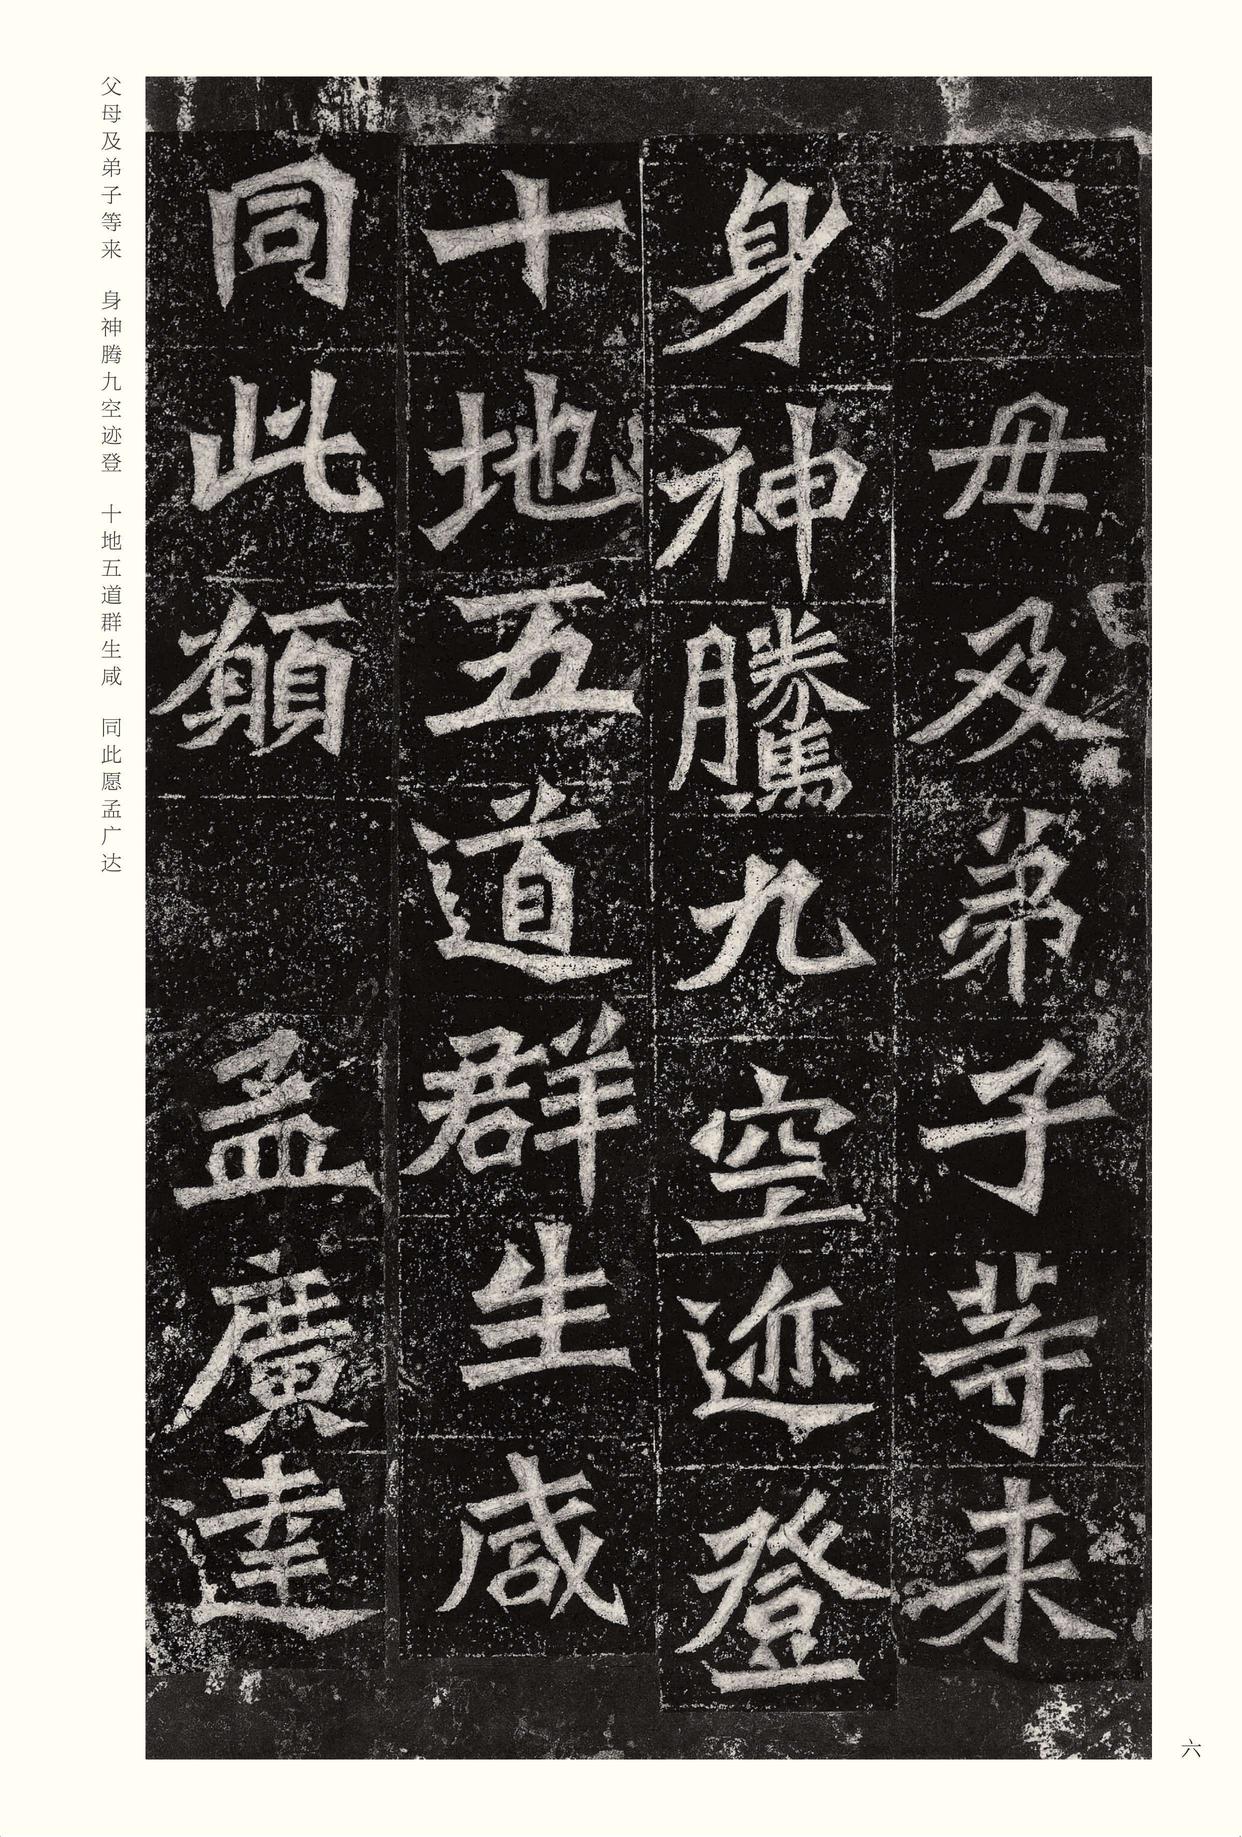 父母及弟子等来
身神騰九空迹登
十地五道群生咸
同此願 孟廣達
父母及弟子等来 身神腾九空迹登 十地五道群生咸 同此愿孟广达
六